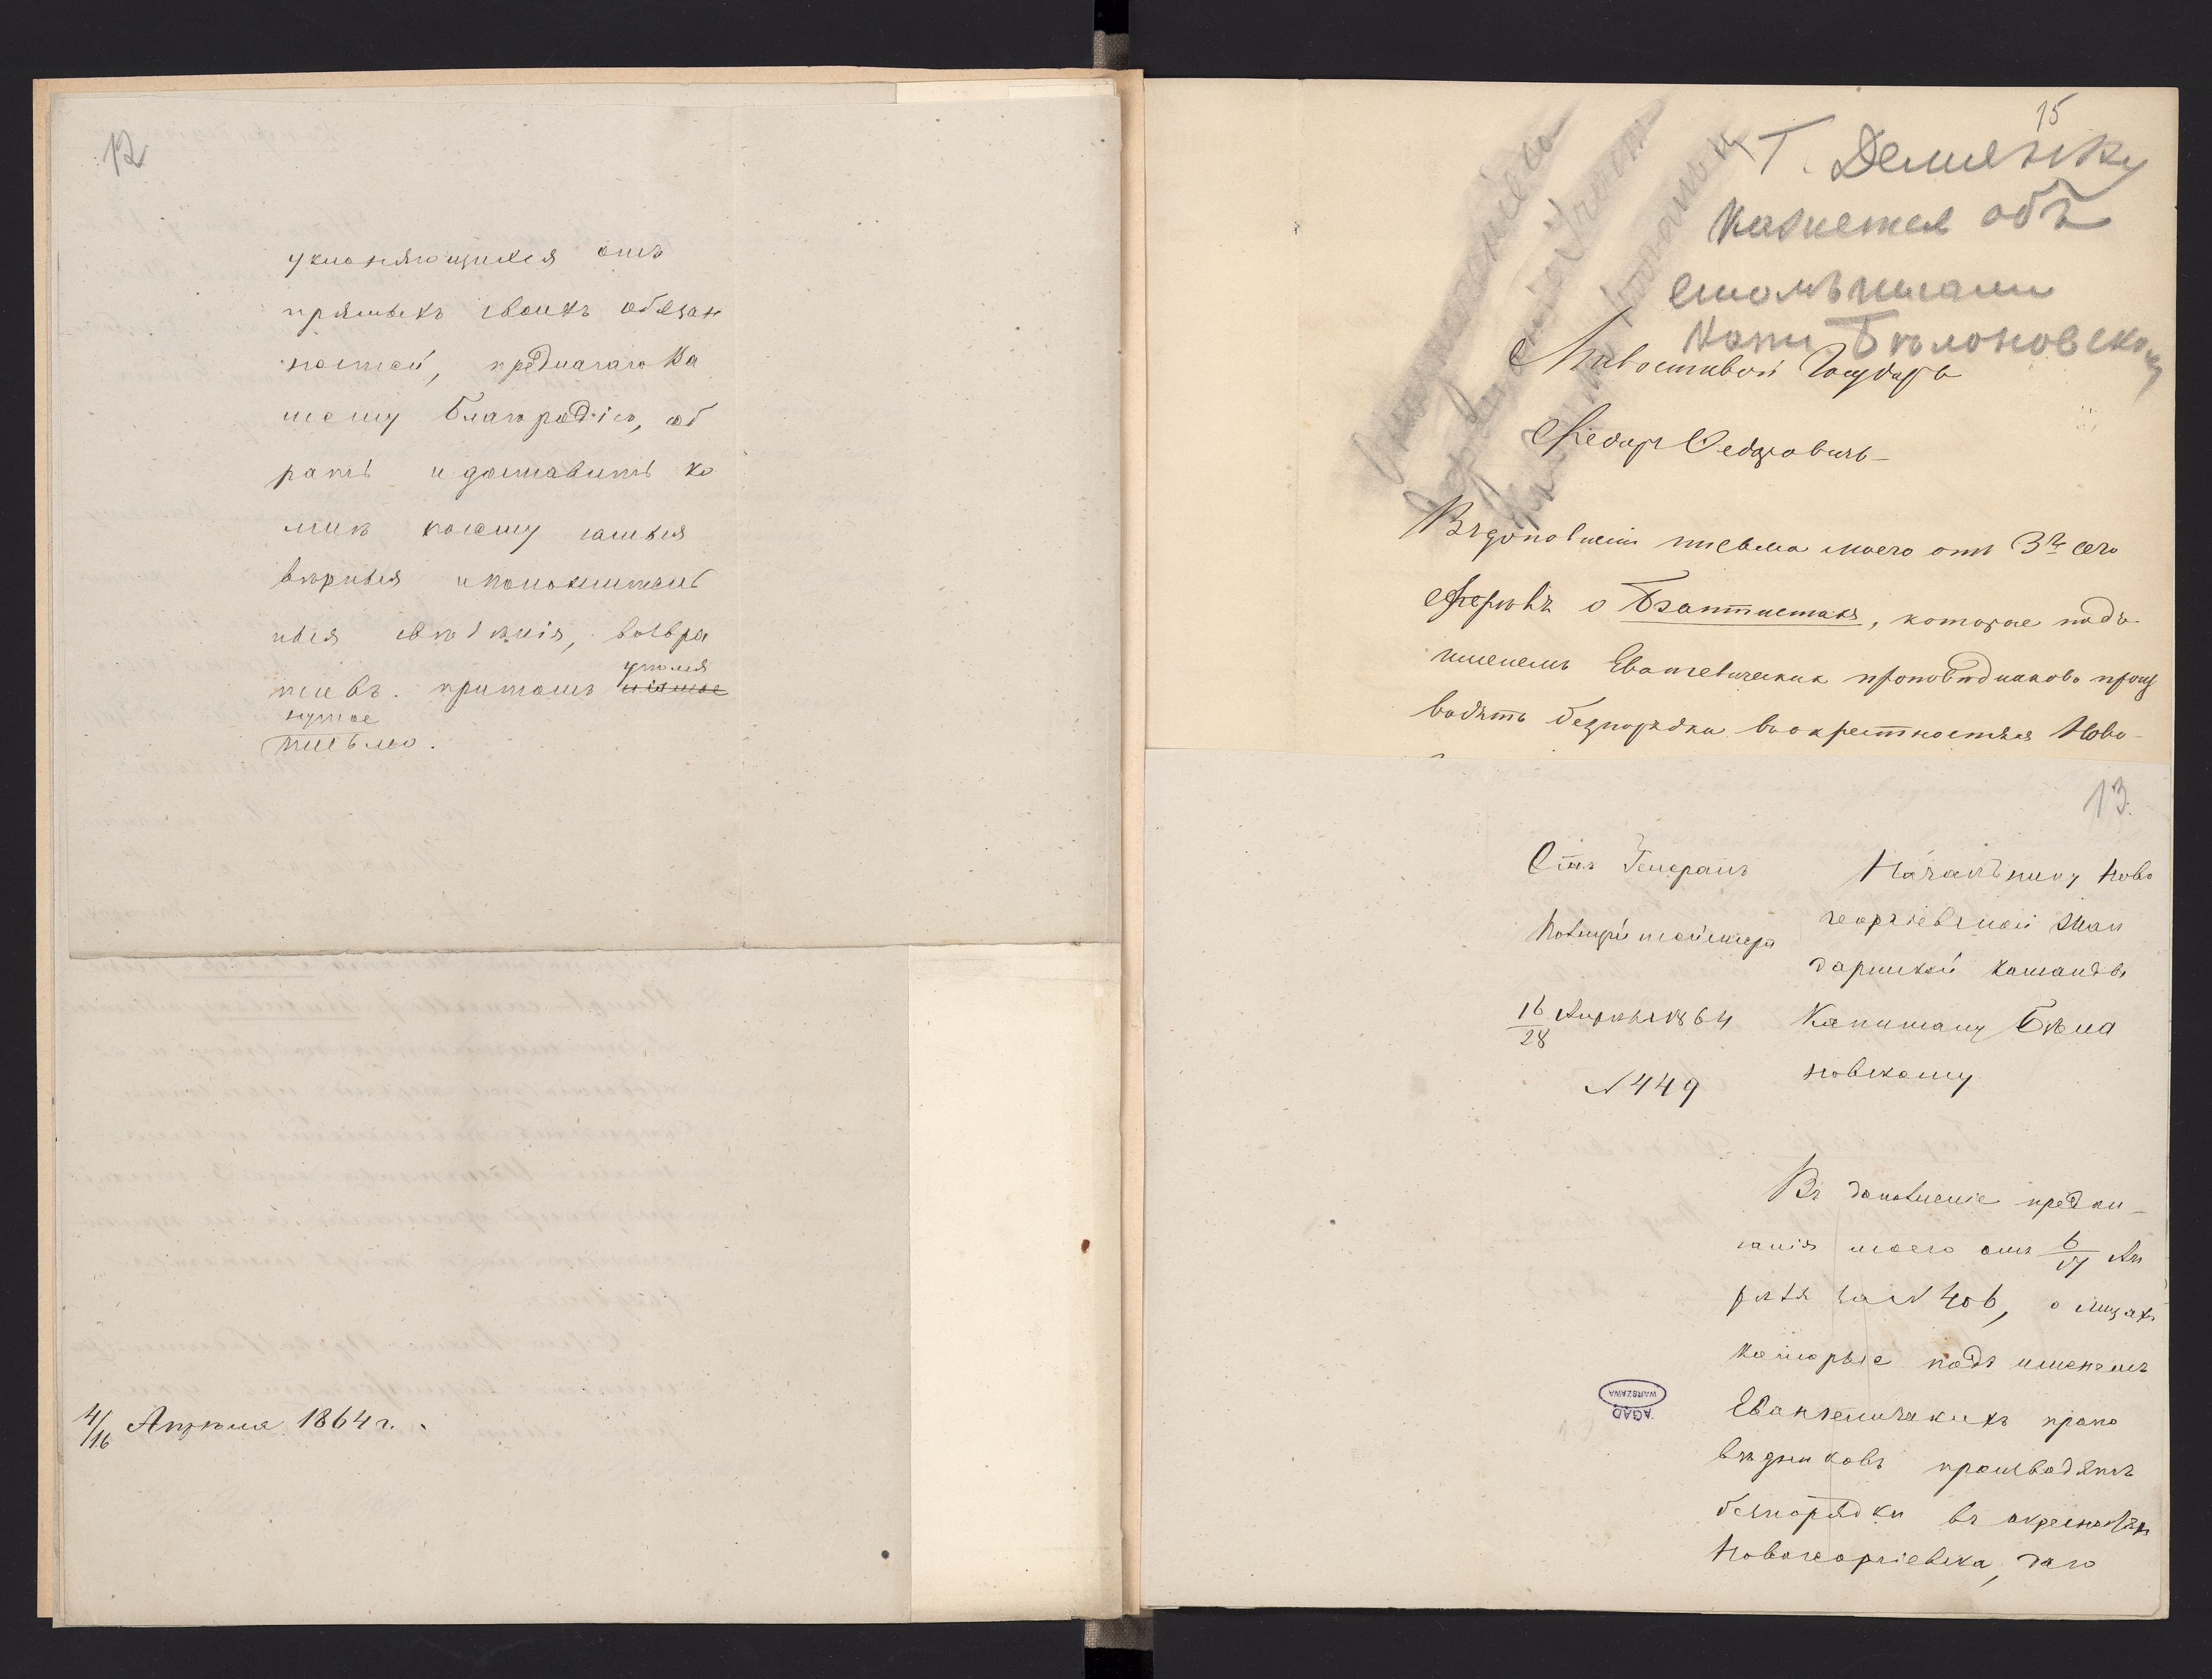 12
уклоняющихся отъ
прямыхъ своихъ обязан
ностей, предлагаю Ва
шему Благородію, соб
рать и доставить ко
мнѣ по сему самыя
вѣрныя и положитель
ныя свѣдѣнія, возвра
тивъ притомъ упомя
нутое
письмо.
4/16 Апрѣля 1864 г.
15
Г. Демченку
Кажется объ
этомъ писали
Кап. Бѣлоновскому
Милостивый Государь
Ѳедоръ Ѳедоровичь
Въ дополненіи письма моего отъ 3го сего
Апрѣля о Баптистахъ, которые подъ
именемъ Евангелическихъ проповѣдниковъ произ
водятъ безпорядки въ окрестностяхъ Ново-
13.
Отъ Генералъ
Полицiймейстера
16/28 Апрѣля 1864
№ 449
Начальнику Ново
георгіевской Жан
дармской команды
Капитану Бѣло
новскому
Въ дополненіе предпи-
санія моего отъ 6/17 Ап
рѣля за № 406, о лицахъ
которые подъ именемъ
Евангелическихъ пропо
вѣдниковъ производятъ
безпорядки въ окрестностях
Новогеоргіевска, даю
AGAD
WARSZAWA